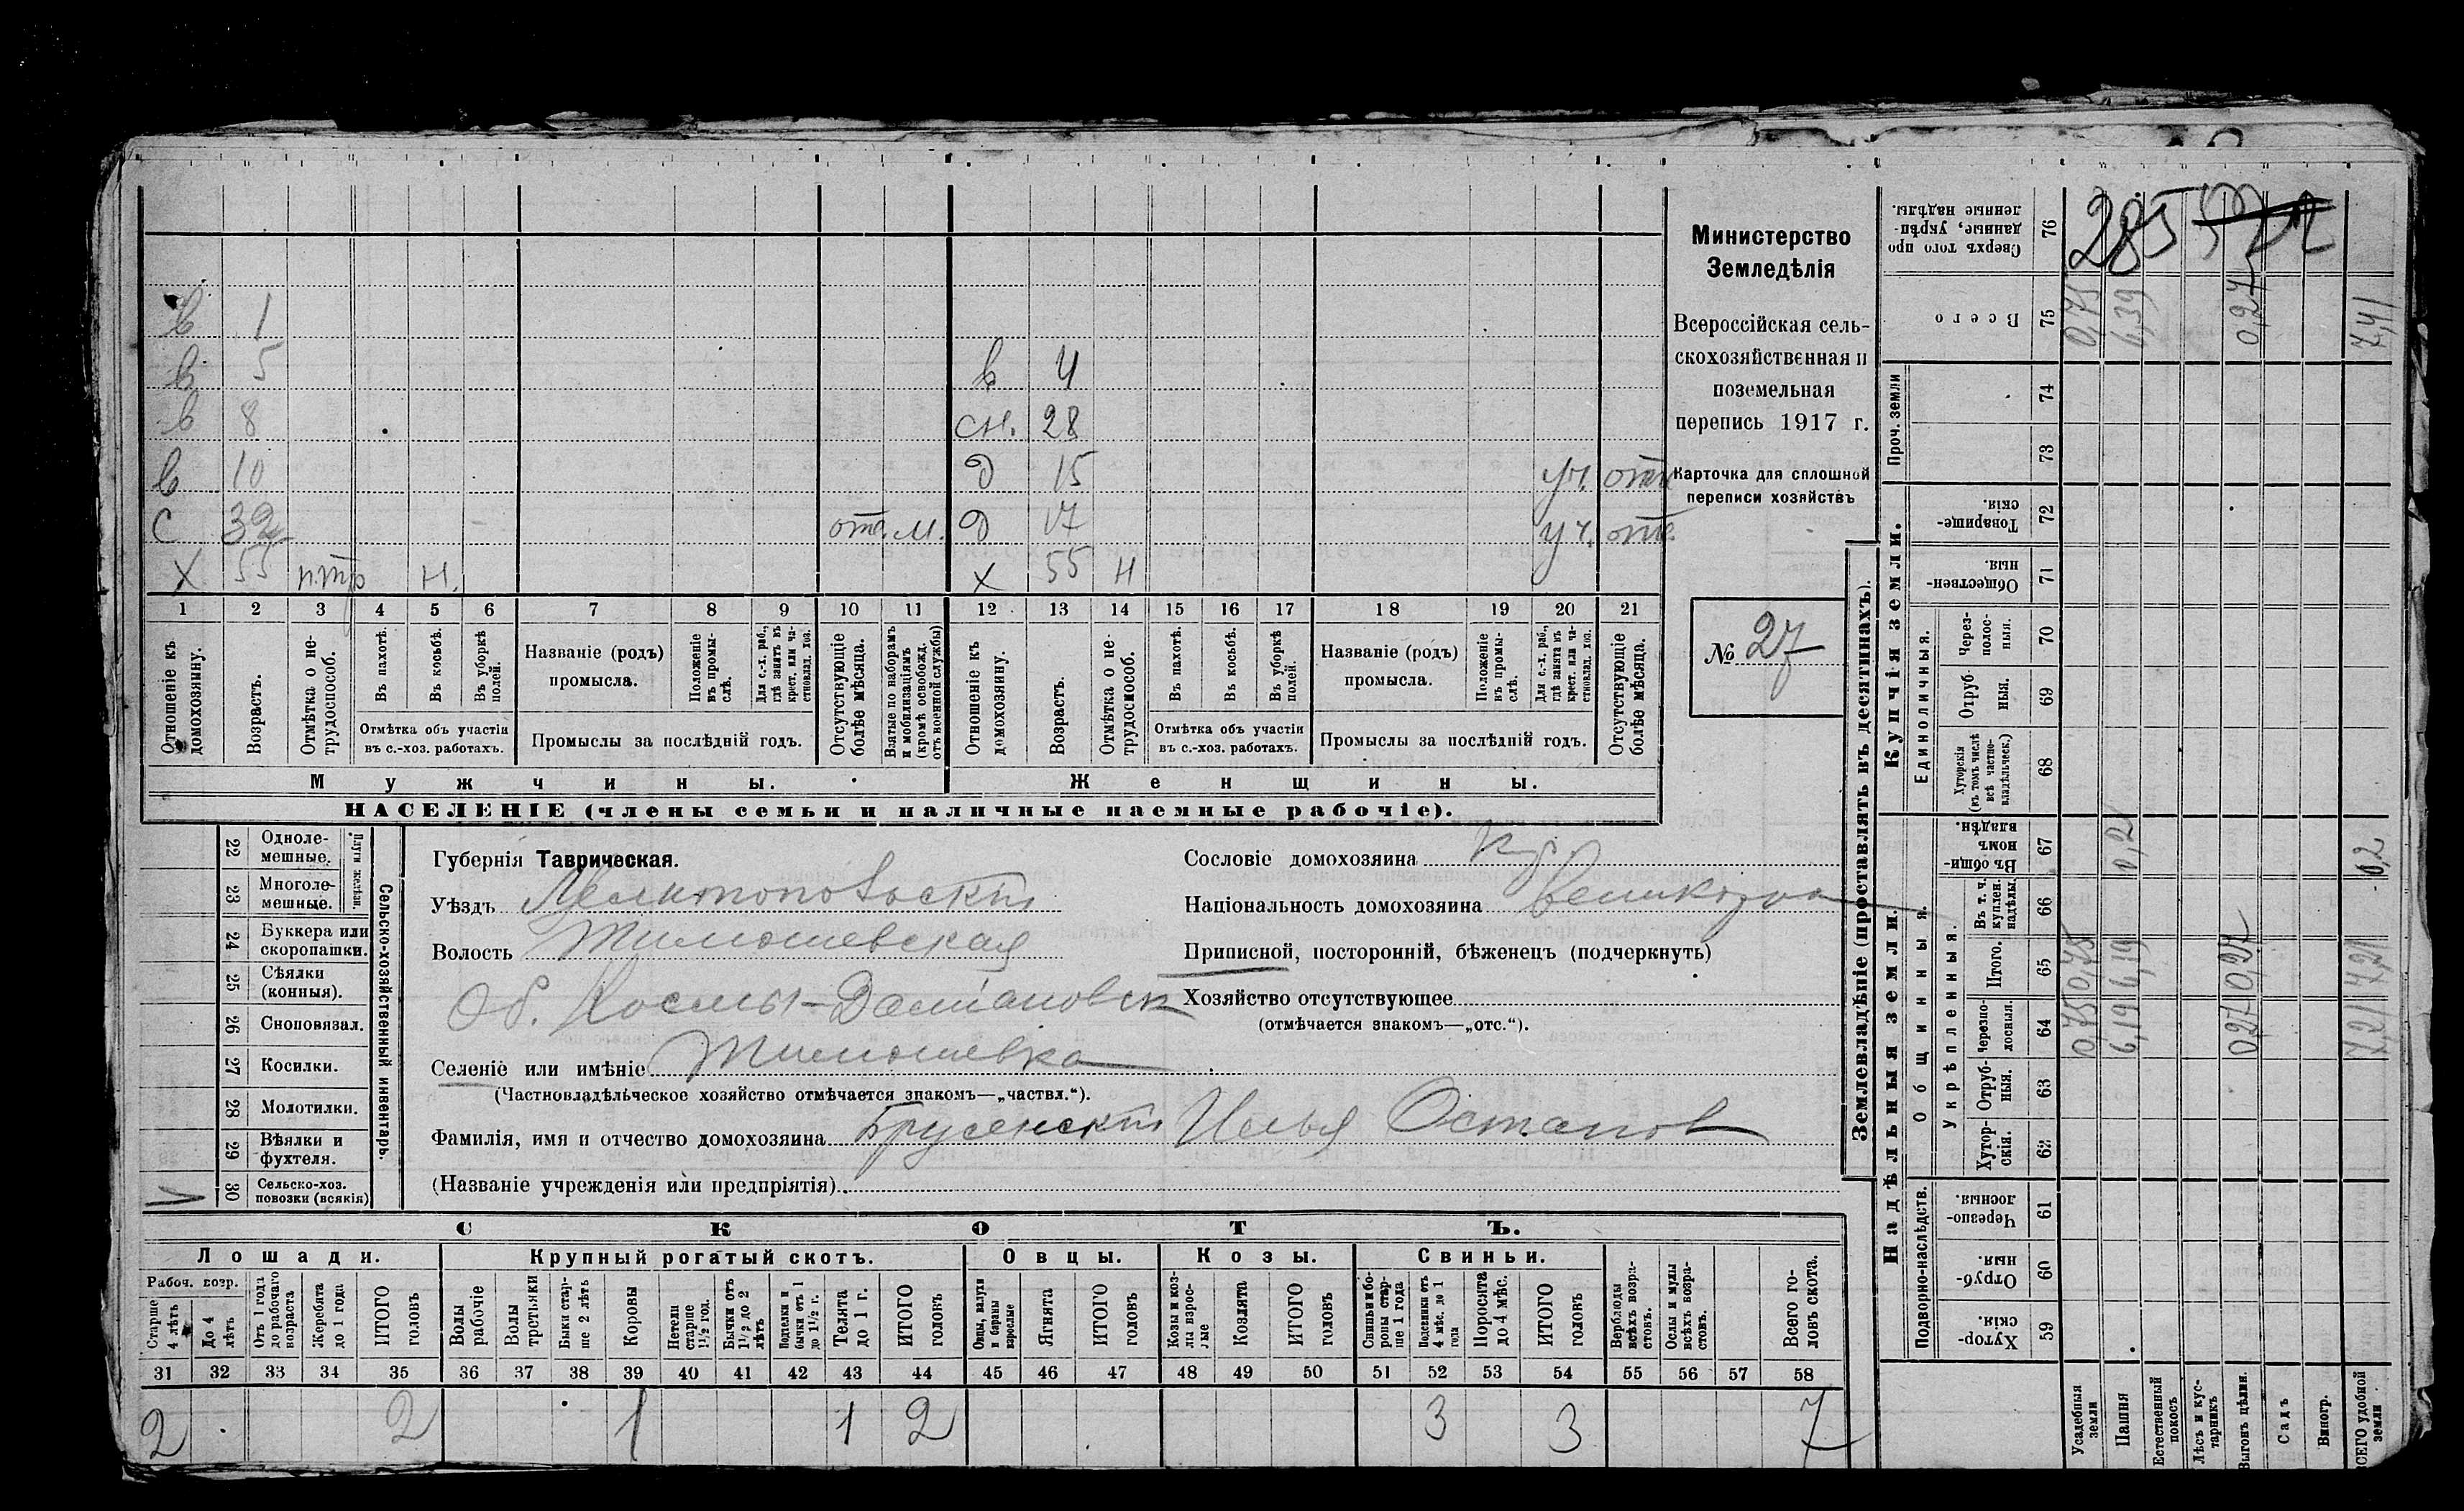 285
в 1
в 5 в 4
в 8 сн. 28
в 10 д 15 уч. отс.
с 32 отс. м. д 17 уч. отс.
х 55 н. Х 55 н
1 2 3 4 5 6 7 8 9 10 11 12 13 14 15 16 17 18 19 20 21
Отношеніе къ домохозяину.
Возрастъ.
Отмѣтка о нетрудоспособ.
Въ пахотѣ.
Въ косьбѣ.
Въ уборкѣ полей.
Отмѣтка объ участіи въ с.-хоз. работахъ.
Названіе (родъ) промысла.
Положеніе въ промыслѣ.
Для с.-х. раб., гдѣ занятъ въ крест. или частновлад. хоз.
Промыслы за послѣдній годъ.
Отсутствующіе болѣе мѣсяца.
Взятые по наборамъ и мобилизаціямъ (кромѣ освобожд. отъ военной службы)
Отношеніе къ домохозяину.
Возрастъ.
Отмѣтка о нетрудоспособ.
Въ пахотѣ.
Въ косьбѣ.
Въ уборкѣ полей.
Отмѣтка объ участіи въ с.-хоз. работахъ.
Названіе (родъ) промысла.
Положеніе въ промыслѣ.
Для с.-х. раб., гдѣ занята въ крест. или частновлад. хоз.
Промыслы за послѣдній годъ.
Отсутствующіе болѣе мѣсяца.
Мужчины. Женщины.
НАСЕЛЕНІЕ (члены семьи и наличные наемные рабочіе).
Министерство
Земледѣлія
Всероссійская сель-
скохозяйственная и
поземельная
перепись 1917 г.
Карточка для сплошной
переписи хозяйствъ
№ 27
Сельско-хозяйственный инвентарь.
Плуги желѣзн.
22 Одноле-
мешные.
23 Многоле-
мешные.
24 Буккера или
скоропашки.
25 Сѣялки
(конныя).
26 Сноповязал.
27 Косилки.
28 Молотилки.
29 Вѣялки и
фухтеля.
30 Сельско-хоз.
повозки (всякія)
Губернія Таврическая.
Уѣздъ Мелитопольскій
Волость Тимошевская
Об. Космы-Даміановск
Селеніе или имѣніе Тимошевка
(Частновладѣльческое хозяйство отмѣчается знакомъ—„частвл.“).
Фамилія, имя и отчество домохозяина Брусенскій Илья Остапов
(Названіе учрежденія или предпріятія)
Сословіе домохозяина кр.
Національность домохозяина Великорос
Приписной, посторонній, бѣженец (подчеркнуть)
Хозяйство отсутствующее
(отмѣчается знакомъ—„отс.“).
СКОТЪ.
Лошади. Крупный рогатый скотъ. Овцы. Козы. Свиньи.
Рабоч. возр.
Старше 4 лѣтъ
До 4 лѣтъ
Отъ 1 года до рабочаго возраста
Жеребята до 1 года
ИТОГО головъ
Волы рабочіе
Волы третьяки
Быки старше 2 лѣтъ
Коровы
Нетели старше 1½ год.
Бычки отъ 1½ до 2 лѣтъ
Подтелки и бычки отъ 1 до 1½ г.
Телята до 1 г.
ИТОГО головъ
Овцы, валухи и бараны взрослые
Ягнята
ИТОГО головъ
Козы и козлы взрослые
Козлята
ИТОГО головъ
Свиньи и боровы старше 1 года
Подсвинки отъ 4 мѣс. до 1 года
Поросята до 4 мѣс.
ИТОГО головъ
Верблюды всѣхъ возрастовъ.
Ослы и мулы всѣхъ возрастовъ.
Всего головъ скота.
31 32 33 34 35 36 37 38 39 40 41 42 43 44 45 46 47 48 49 50 51 52 53 54 55 56 57 58
2 2 1 1 2 3 3 7
Землевладѣніе (проставлять въ десятинахъ).
Купчія земли.
Надѣльныя земли.
Сверхъ того проданные, укрѣпленные надѣлы. 76
Всего 75 0,75 6,39 0,27 7,41
Проч. земли 74
73
Товарищескія. 72
Общественныя. 71
Единоличныя.
Черезполосныя. 70
Отрубныя. 69
Хуторскія (въ томъ числѣ всѣ частновладѣльческ.) 68
Общинныя.
Въ общинномъ владѣн. 67 0,2 0,2
Укрѣпленныя.
Въ т. ч. куплен. надѣлы. 66
Итого. 65 0,75 6,19 0,27 7,21
Черезполосныя. 64 0,75 6,19 0,27 7,21
Отрубныя. 63
Хуторскія. 62
Подворно-наслѣдств.
Черезполосныя. 61
Отрубныя. 60
Хуторскія. 59
Усадебныя земли
Пашня
Естественный покосъ
Лѣсъ и кустарникъ
Выгонъ цѣлин.
Садъ
Виногр.
ВСЕГО удобной земли